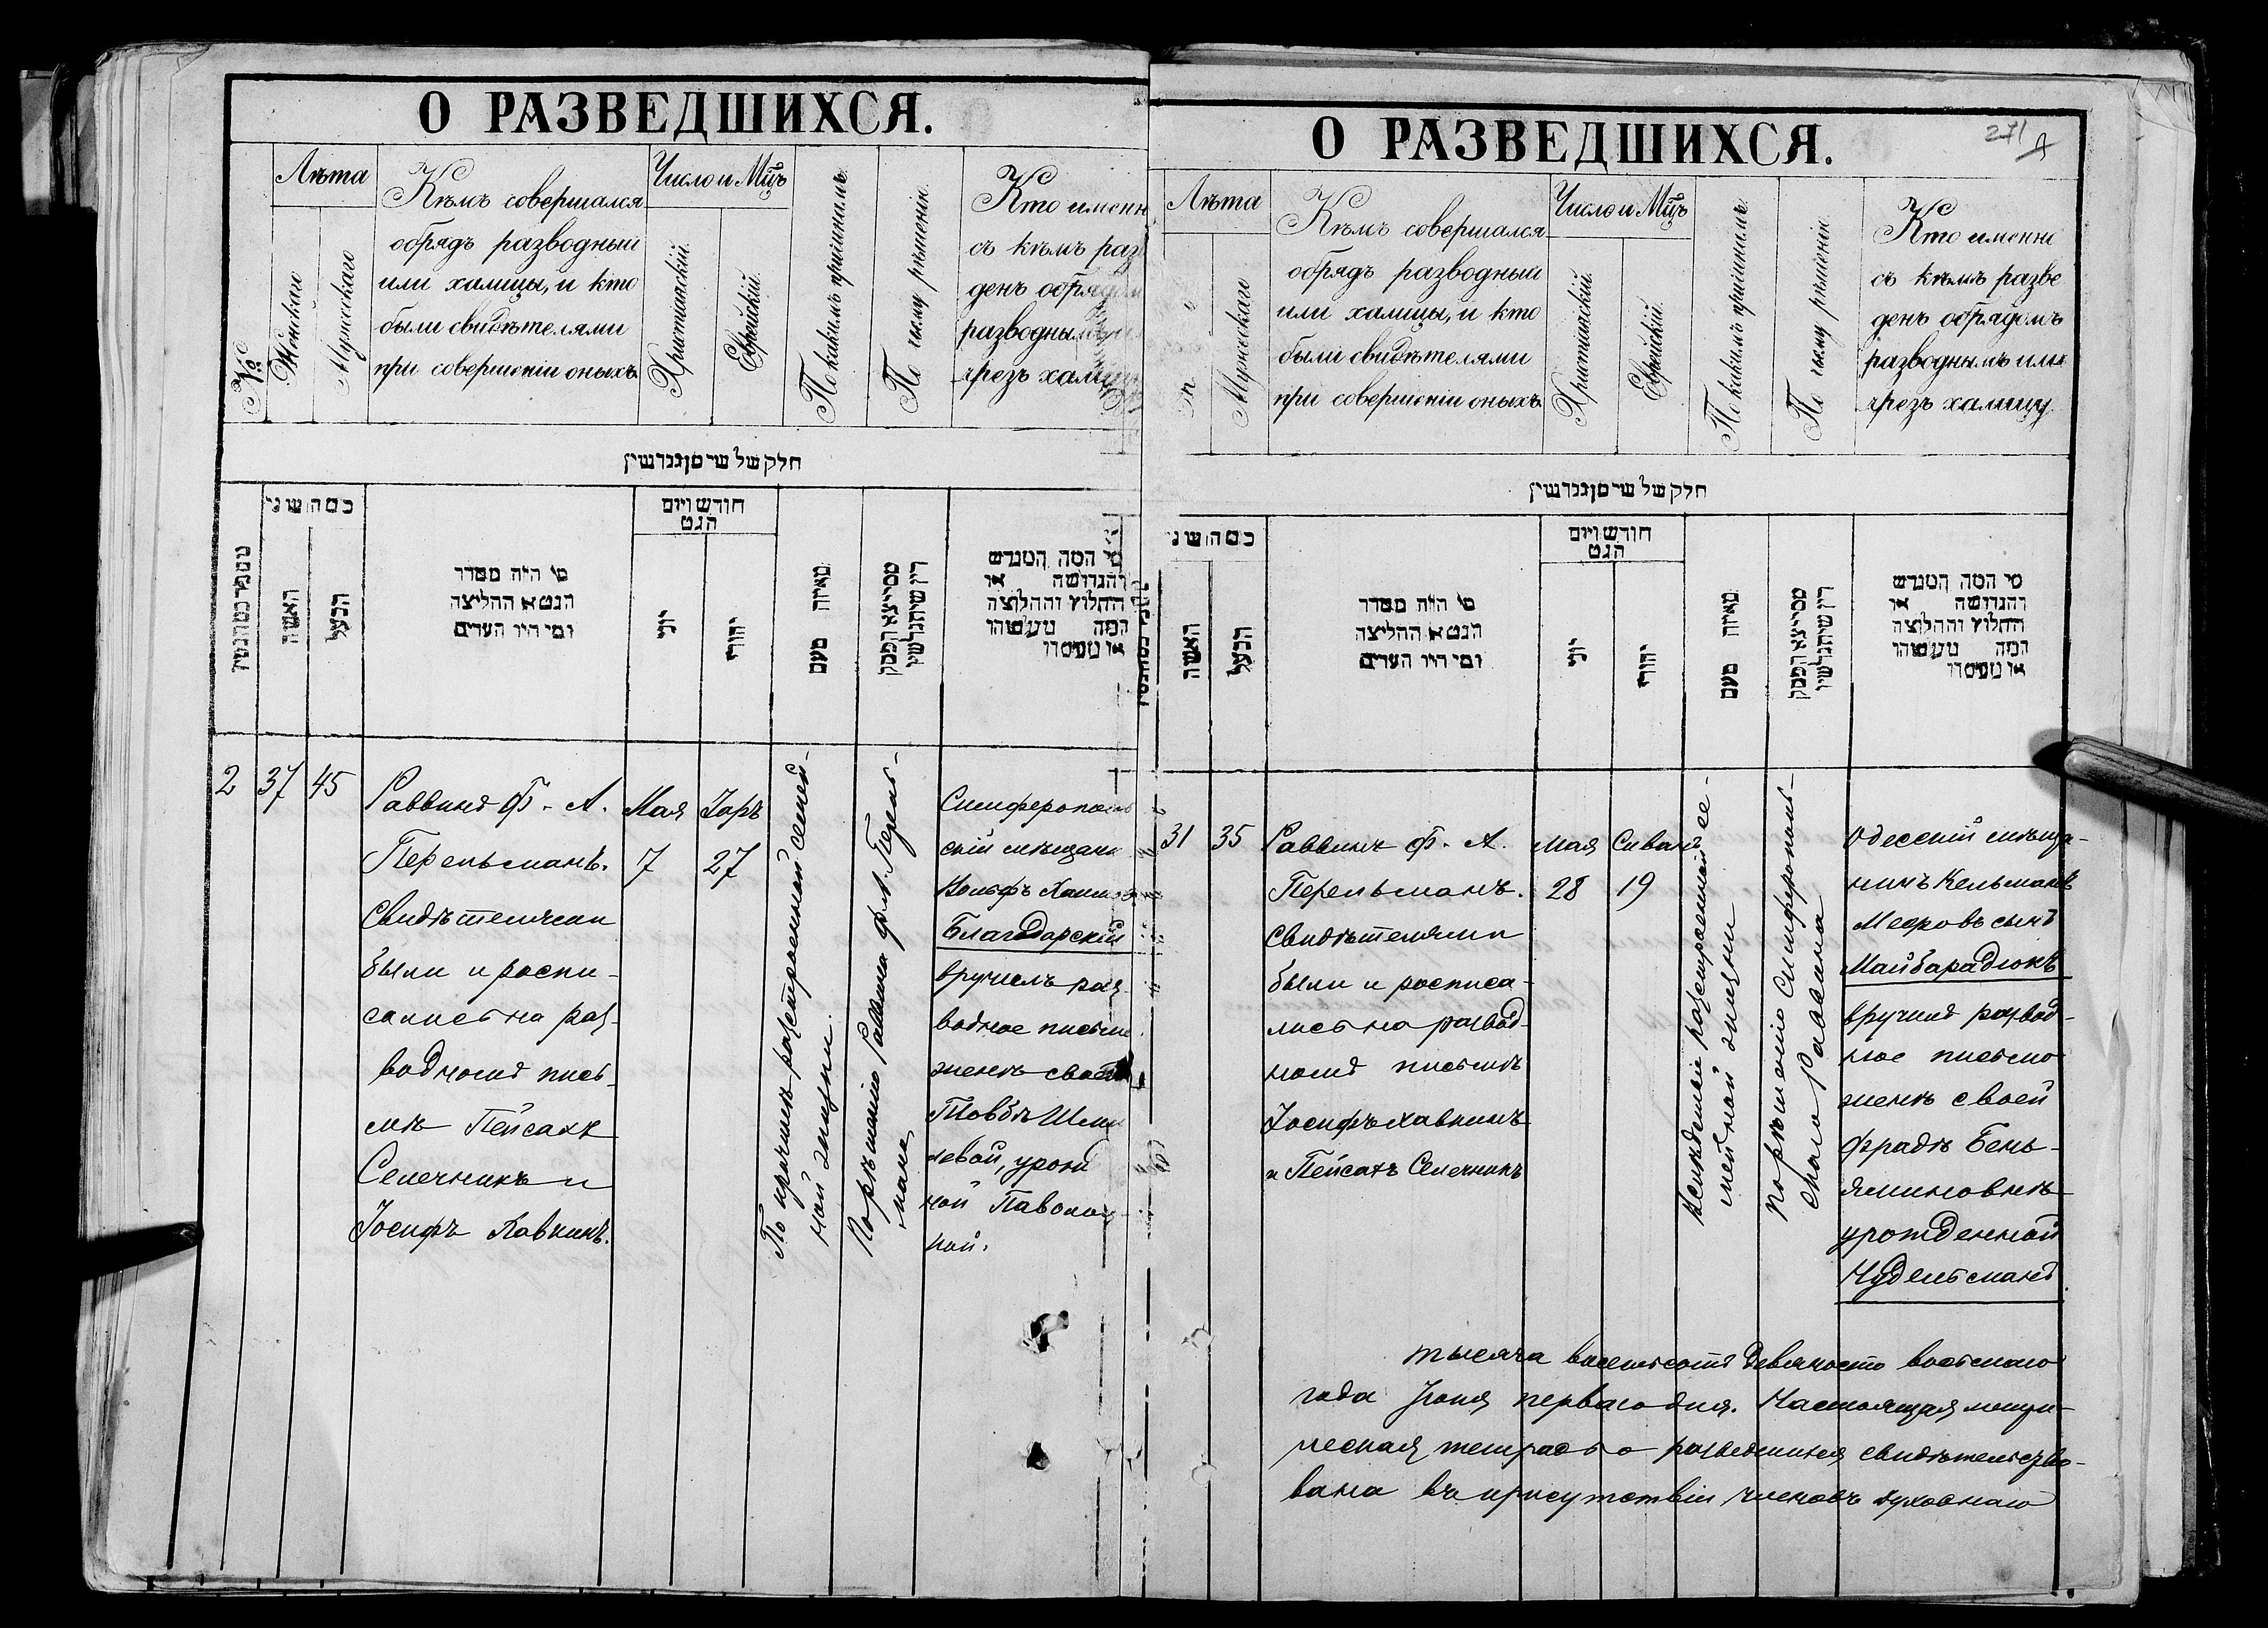 О РАЗВЕДШИХСЯ.
№
Лѣта
Женскаго
Мужескаго
Кѣмъ совершался
обрядъ разводный
или халицы, и кто
были свидѣтелями
при совершеніи оныхъ.
Число и Мцъ
Христіанскій.
Еврейскій.
По какимъ причинамъ.
По чьему рѣшенію.
Кто именн
съ кѣмъ раз
денъ обрядом
разводнымъ
чрезъ халиц
חלק של שי מן גנדשין
כמה שני
האשה
הבעל
מי היה מסדר
הגט או החליצה
ומי היו העדים
חודש ויום
הגט
יוני
יהודי
מאיזה טעם
מי המה המגרש
והגרושה או
החלוץ והחלוצה
2
37
45
Раввинъ Ф. А.
Перельманъ.
Свидѣтелями
были и роспи-
сались на раз-
водномъ пись-
мѣ Пейсахъ
Селечникъ и
Іосифъ Хавкинъ.
Мая
7
Іаръ
27
По причинѣ разстроенной семей-
ной жизни.
По рѣшенію Раввина Ф. А. Перель-
мана
Симферополь
скій мѣщани
Вольфъ Хаим
Благодарскій
вручилъ раз
водное письмо
женѣ своей
Товбѣ Шму
левой, урожд
ной Паволоц
кой.
О РАЗВЕДШИХСЯ.
271
Лѣта
Мужескаго
Кѣмъ совершался
обрядъ разводный
или халицы, и кто
были свидѣтелями
при совершеніи оныхъ.
Число и Мцъ
Христіанскій.
Еврейскій.
По какимъ причинамъ.
По чьему рѣшенію
Кто именно
съ кѣмъ разве
денъ обрядомъ
разводнымъ или
чрезъ халицу.
חלק של שי מן גנדשין
כמה שני
האשה
הבעל
מי היה מסדר
הגט או החליצה
ומי היו העדים
חודש ויום
הגט
יוני
יהודי
מאיזה טעם
מי המה המגרש
והגרושה או
החלוץ והחלוצה
31
35
Раввинъ Ф. А.
Перельманъ.
Свидѣтелями
были и росписа-
лись на развод-
номъ письмѣ
Іосифъ Хавкинъ
и Пейсахъ Селечникъ
Мая
28
Сиванъ
19
Вслѣдствіи разстроенной се-
мейной жизни
По рѣшенію Симферополь-
скаго Раввина
Одесскій мѣща-
нинъ Кельманъ
Мееровъ сынъ
Майбарадюкъ
вручилъ развод-
ное письмо
женѣ своей
Фрадѣ Бень-
яминовнѣ
урожденной
Нудельманъ
тысяча восемьсотъ девяносто восьмаго
года Іюня перваго дня. Настоящая метри-
ческая тетрадь о разведшихся свидѣтельство-
вана въ присутствіи членовъ духовнаго